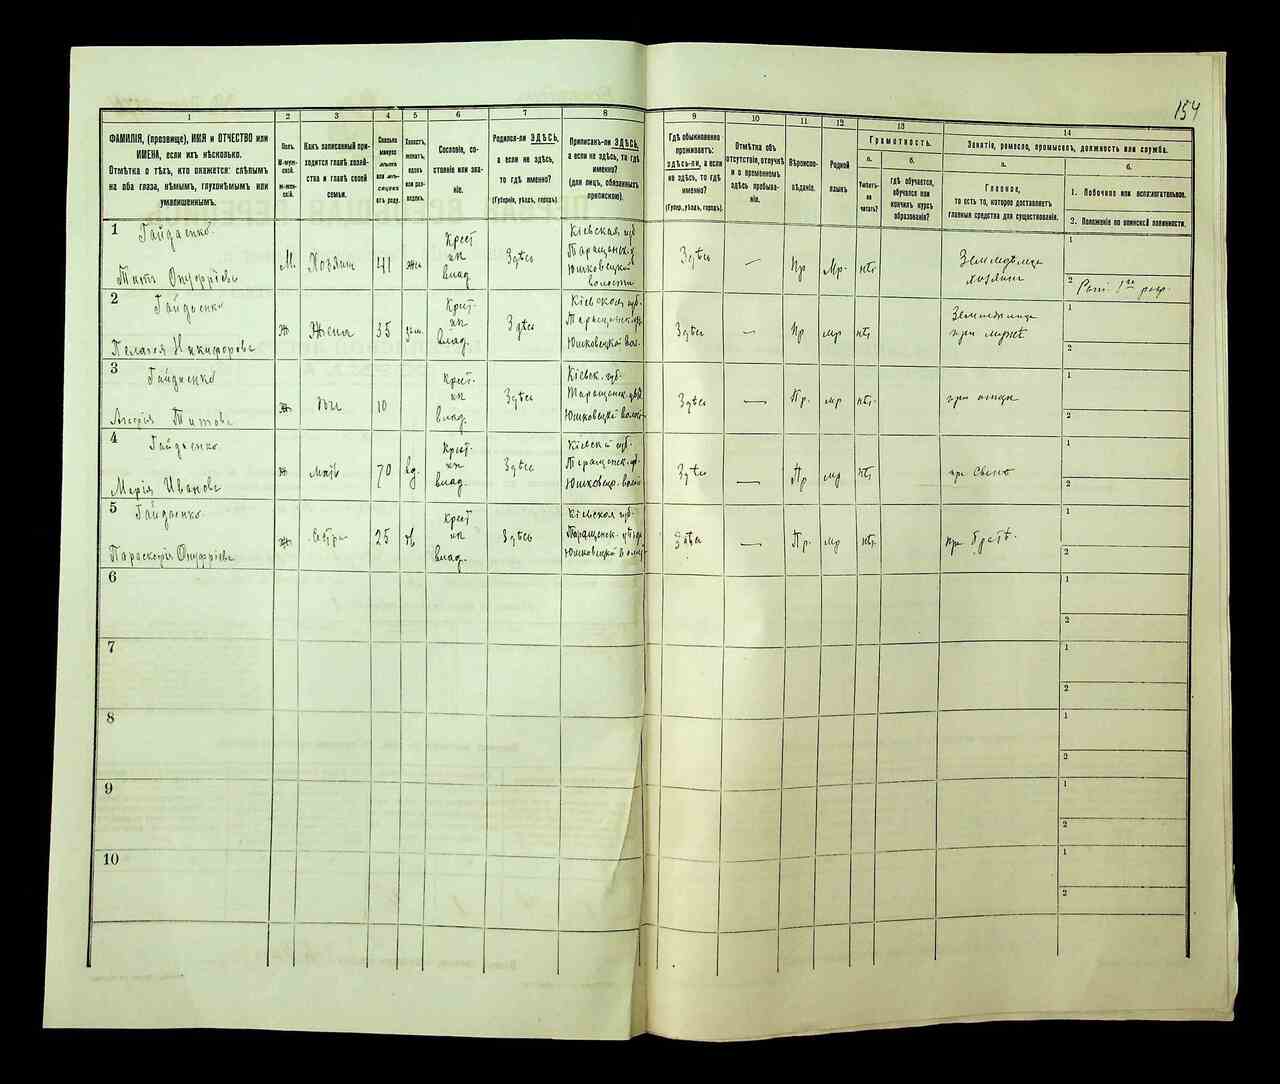 154
1
2
3
4
5
6
7
8
9
10
11
12
13
14
ФАМИЛІЯ, (прозвище), ИМЯ и ОТЧЕСТВО или
ИМЕНА, если ихъ нѣсколько.
Отмѣтка о тѣхъ, кто окажется: слѣпымъ
на оба глаза, нѣмымъ, глухонѣмымъ или
умалишеннымъ.
Полъ.
М-муж-
ской.
Ж-жен-
скій.
Какъ записанный при-
ходится главѣ хозяй-
ства и главѣ своей
семьи.
Сколько
минуло
лѣтъ
или мѣ-
сяцевъ
отъ роду.
Холостъ,
женатъ,
вдовъ
или раз-
веденъ.
Сословіе, со-
стояніе или зва-
ніе.
Родился-ли ЗДѢСЬ,
а если не здѣсь,
то гдѣ именно?
(Губернія, уѣздъ, городъ).
Приписанъ-ли ЗДѢСЬ,
а если не здѣсь, то гдѣ
именно?
(для лицъ, обязанныхъ
припискою).
Гдѣ обыкновенно
проживаетъ:
ЗДѢСЬ-ЛИ, а если
не здѣсь, то гдѣ
именно?
(Губер., уѣздъ, городъ).
Отмѣтка объ
отсутствіи, отлучкѣ
и о временномъ
здѣсь пребыва-
ніи.
Вѣроиспо-
вѣданіе.
Родной
языкъ
Грамотность.
а.
б.
Умѣетъ-
ли
читать?
гдѣ обучается,
обучался или
кончилъ курсъ
образованія?
Занятіе, ремесло, промыселъ, должность или служба.
а.
б.
Главное,
то есть то, которое доставляетъ
главныя средства для существованія.
1. Побочное или вспомогательное.
2. Положеніе по воинской повинности.
1
Гайдаенко
Титъ Онуфріевъ
М.
Хозяин
41
жен
Крест
ин
влад.
Здѣсь
Кіевская губ
Таращанск. у
Юшковецкой
волости
Здѣсь
—
Пр
Мр.
нѣт
Земледѣлец
хозяин
1
2 Ратн. 1го разр.
2
Гайдаенко
Пелагея Никифорова
Ж
Жена
35
зам.
Крест-
ин
влад.
Здѣсь
Кіевская губ.
Таращанск. у
Юшковецкой вол.
Здѣсь
—
Пр
мр
нѣт
Земледѣлица
при мужѣ
1
2
3
Гайдаенко
Титова
Ж
10
Крест-
ин
влад.
Здѣсь
Кіевск. губ.
Таращанск. у
Юшковецкой волост
Здѣсь
—
Пр.
мр
нѣт.
при отцѣ
1
2
4
Гайдаенко
Марія Иванова
Ж
мать
70
вд.
Крест-
ин
влад.
Здѣсь
Кіевска губ.
Таращанск. у
Юшковецк. волост
Здѣсь
—
Пр
мр
нѣт
при сыне
1
2
5
Гайдаенко
Параскевія Онуфріева
Ж
сестра
25
дѣв
Крест
ин
влад.
Здѣсь
Кіевская губ.
Таращанск. уѣзда
Юшковецкой волост
Здѣсь
—
Пр.
мр
нѣт.
при братѣ.
1
2
6
1
2
7
1
2
8
1
2
9
1
2
10
1
2